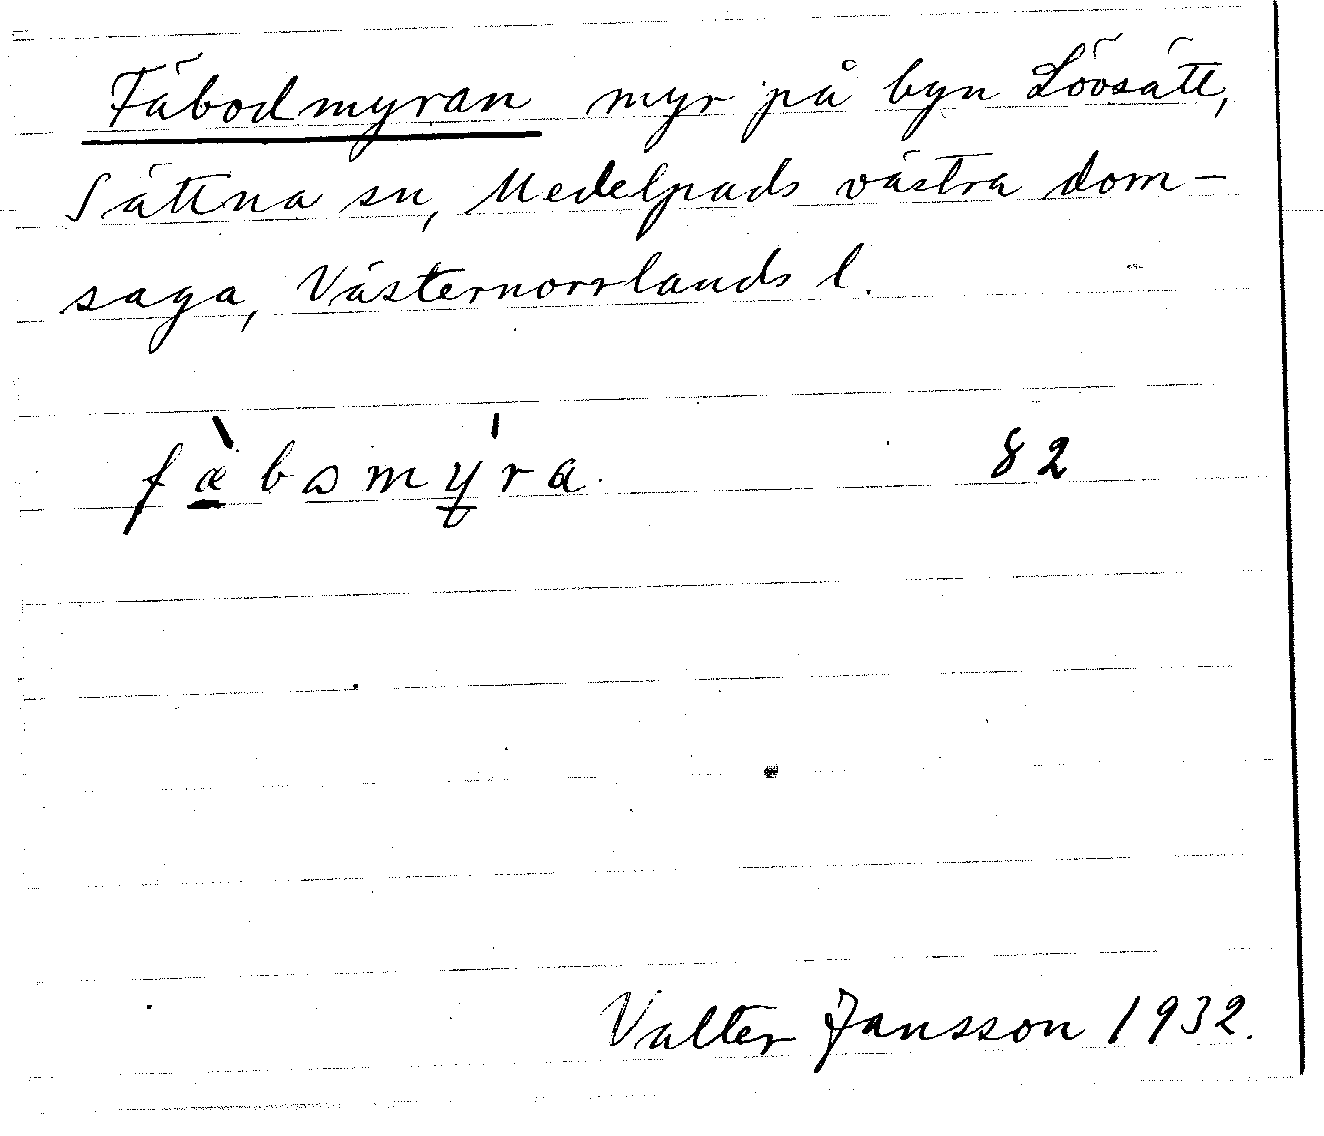 Fäbodmyran myr på byn Lövsätt,
Sättna sn, Medelpads västra dom-
saga, Västernorrlands l.
fæ̀bɷmý̱ra. 82
Valter Jansson 1932.